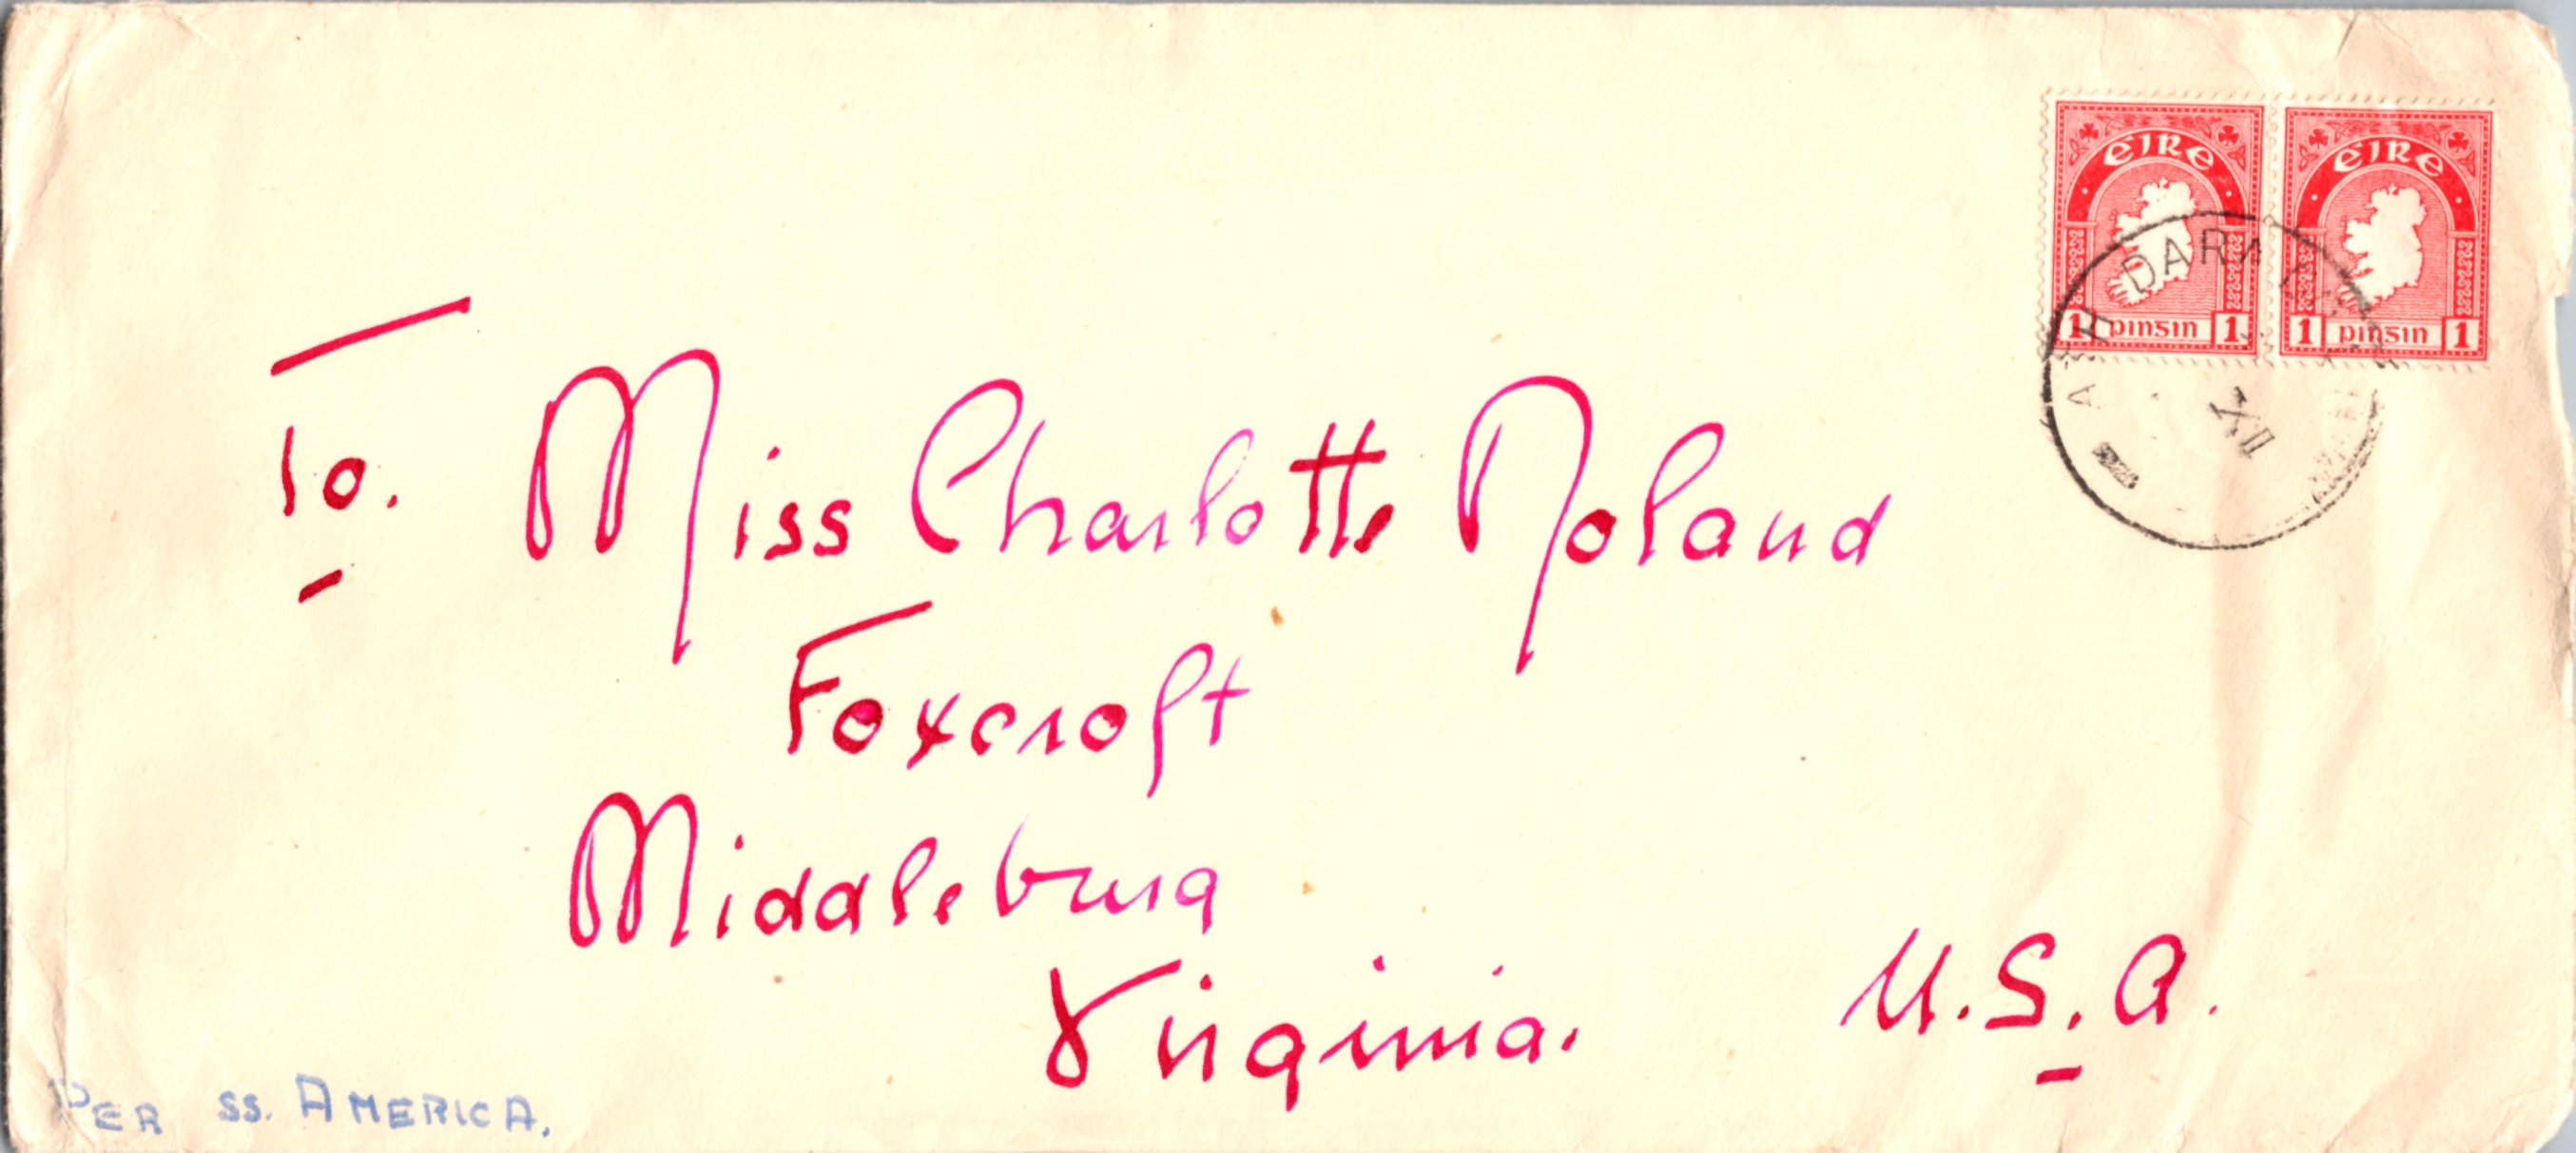 ÉIRE ÉIRE
1 pinsin 1 1 pinsin 1
DARA
XII
To. Miss Charlotte Noland
Foxcroft
Middleburg
Virginia. U.S.A.
PER SS. AMERICA.